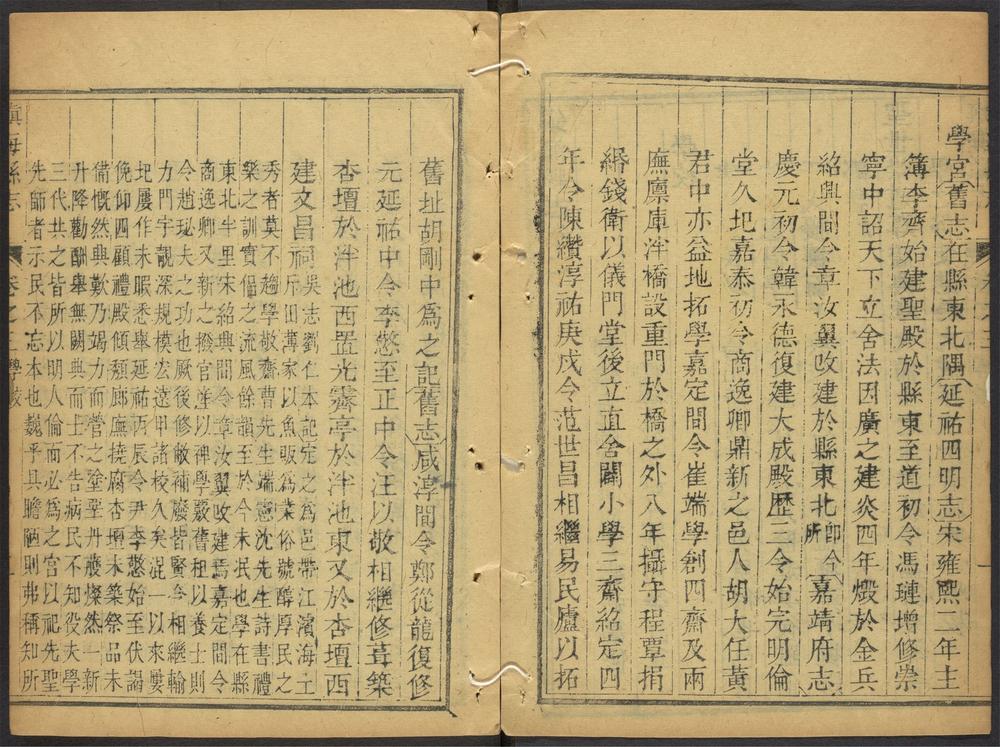 學宮舊志在縣東北隅延祐四明志宋雍熙二年主
簿李齊始建聖殿於縣東至道初令馮璉增修崇
寧中詔天下立舍法因廣之建炎四年燬於金兵
紹興間令章汝翼改建於縣東北卽今所嘉靖府志
慶元初令韓永德復建大成殿歷三令始完明倫
堂久圮嘉泰初令商逸卿鼎新之邑人胡大任黃
君中亦益地拓學嘉定間令崔端學創四齋及兩
廡廩庫泮橋設重門於橋之外八年攝守程覃捐
緡錢衛以儀門堂後立直舍闢小學三齋紹定四
年令陳纘淳祐庚戌令范世昌相繼易民廬以拓
舊址胡剛中爲之記舊志咸淳間令鄭從龍復修
元延祐中令李慜至正中令汪以敬相繼修葺築
杏壇於泮池西置光霽亭於泮池東又於杏壇西
建文昌祠吳志劉仁本記定之爲邑帶江濱海土
斥田薄家以魚販爲業俗號醇厚民之
秀者莫不趨學敬齋曹先生端憲沈先生詩書禮
樂之訓實傴之流風餘韻至於今未泯也學在縣
東北半里宋紹興間令章汝翼改建焉嘉定間令
商逸卿又新之撥官塗以裨學覈舊租以養士則
令趙玜夫之功也厥後修敝補廢皆賢令相繼輸
力門宇靚深規模宏遠甲諸校久矣混一以來婁
圯屢作未暇悉舉延祐丙辰令尹李慜始至伏謁
俛仰四顧禮殿傾頽廊廡撓腐杏壇未築祭品未
備慨然興歎乃竭力而營之塗塈丹雘燦然一新
升降勸酬舉無闕典而士不告病民不知役夫學
三代共之皆所以明人倫而必爲之宮以祀先聖
先師者示民不忘本也巍乎具瞻陋則弗稱知所
鎮海縣志
卷之
學校